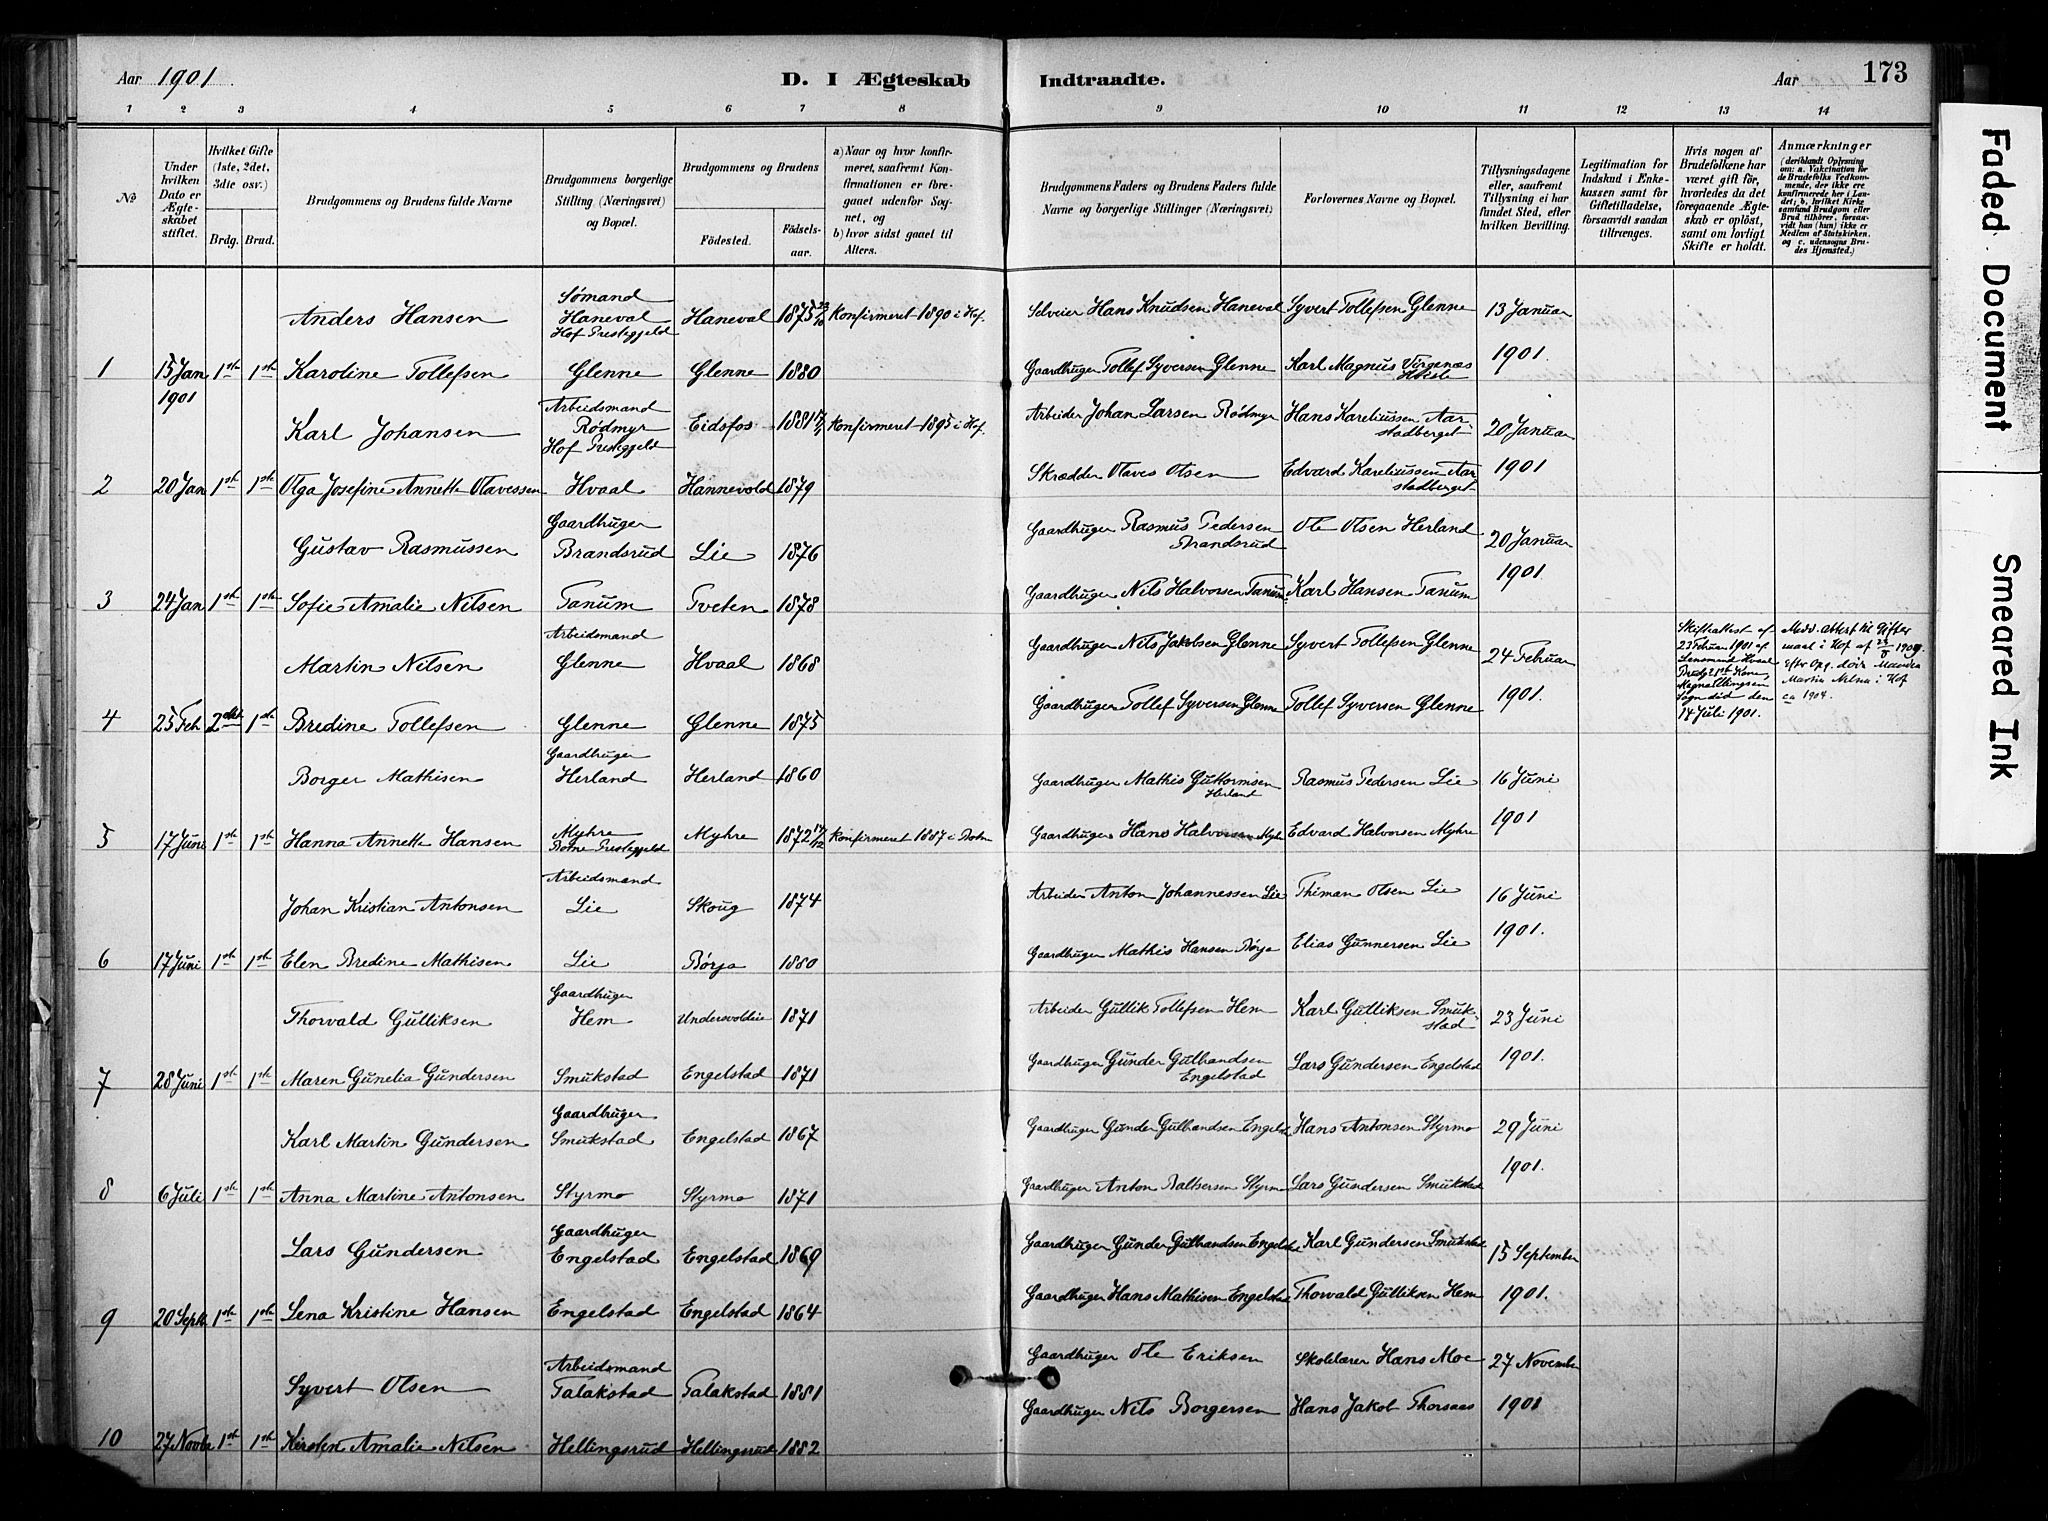 Aar 1901
D. I Ægteskab Indtraadte.
Aar
173
1 2 3 4 5 6 7 8 9 10 11 12 13 14
No
Under hvilken Dato er Ægteskabet stiftet.
Hvilket Gifte (1ste, 2det, 3die osv.)
Brdg. Brud.
Brudgommens og Brudens fulde Navne
Brudgommens borgerlige Stilling (Næringsvei) og Bopæl.
Brudgommens og Brudens
Födested.
Födselsaar.
a) Naar og hvor konfirmeret, saafremt Konfirmationen er foregaaet udenfor Sognet, og
b) hvor sidst gaaet til Alters.
Brudgommens Faders og Brudens Faders fulde Navne og borgerlige Stillinger (Næringsvei)
Forlovernes Navne og Bopæl.
Tillysningsdagene eller, saafremt Tillysning ei har fundet Sted, efter hvilken Bevilling.
Legitimation for Indskud i Enkekassen samt for Giftetilladelse, forsaavidt saadan tiltrænges.
Hvis nogen af Brudefolkene har været gift för, hvorledes da det foregaaende Ægteskab er oplöst, samt om lovligt Skifte er holdt.
Anmærkninger (deriblandt Oplysning om: a. Vakcination for de Brudefolks Vedkommende, der ikke ere konfirmerede her i Landet; b. hvilket Kirkesamfund Brudgom eller Brud tilhörer, forsaavidt han (hun) ikke er Medlem af Statskirken, og c. udensogns Brudes Hjemsted.)
Anders Hansen Sømand Haneval Hof Prestegjeld Haneval 1875 23/10 Konfirmeret 1890 i Hof. Selveier Hans Knudsen Haneval Syvert Tollefsen Glenne 13 Januar
1 15 Jan 1901 1ste 1ste Karoline Tollefsen Glenne Glenne 1880 Gaardbruger Tollef Syversen Glenne Karl Magnus Virgenæs 1901.
Karl Johansen Arbeidsmand Rødmyr Hof Prestegjeld Eidsfos 1881 Konfirmeret 1895 i Hof. Arbeider Johan Larsen Rødmyr Hans Kareliussen Aarstadberget 20 Januar
2 20 Jan 1ste 1ste Olga Josefine Annette Olavessen Hvaal Hannevold 1879 Skrædder Olaves Olsen Edvard Kareliussen Aarstadberget 1901
Gustav Rasmussen Gaardbruger Brandsrud Lie 1876 Gaardbruger Rasmus Pedersen Brandsrud Ole Olsen Herland 20 Januar
3 24 Jan 1ste 1ste Sofie Amalie Nilsen Tanum Tveten 1878 Gaardbruger Nils Halvorsen Tanum Karl Hansen Tanum 1901.
Martin Nilsen Arbeidsmand Glenne Hvaal 1868 Gaardbruger Nils Jakobsen Glenne Syvert Tollefsen Glenne 24 Februar Skifteattest af 23 Februar 1901 af Lensmand Hvaal Brudg. 1ste Kone, døde den 14 Juli 1901. Medd. attest til Giftermaal i Hof af 1909. Efter Opg. døde Martin Nilsen i Hof ca 1904.
4 25 Feb 2det 1ste Bredine Tollefsen Glenne Glenne 1875 Gaardbruger Tollef Syversen Glenne Tollef Syversen Glenne 1901.
Borger Mathisen Gaardbruger Herland Herland 1860 Gaardbruger Mathis Guttormsen Herland Rasmus Pedersen Lie 16 Juni
5 17 Juni 1ste 1ste Hanna Annette Hansen Myhre Botne Prestegjeld Myhre 1872 Konfirmeret 1887 i Botne Gaardbruger Hans Halvorsen Myhre Edvard Halvorsen Myhre 1901
Johan Kristian Antonsen Arbeidsmand Lie Skoug 1874 Arbeider Anton Johannessen Lie Thiman Olsen Lie 16 Juni
6 17 Juni 1ste 1ste Elen Bredine Mathisen Lie Børja 1880 Gaardbruger Mathis Hansen Børja Elias Gunnersen Lie 1901.
Thorvald Gulliksen Gaardbruger Hem Undersvoldeie 1871 Arbeider Gullik Tollefsen Hem Karl Gulliksen Smukstad 23 Juni
7 28 Juni 1ste 1ste Maren Gunelia Gundersen Smukstad Engelstad 1871 Gaardbruger Gunder Gulbrandsen Engelstad Lars Gundersen Engelstad 1901.
Karl Martin Gundersen Gaardbruger Smukstad Engelstad 1867 Gaardbruger Gunder Gulbrandsen Engelstad Hans Antonsen Styrmo 29 Juni
8 6 Juli 1ste 1ste Anna Martine Antonsen Styrmo Styrmo 1871 Gaardbruger Anton Baltsersen Styrmo Lars Gundersen Smukstad 1901.
Lars Gundersen Gaardbruger Engelstad Engelstad 1869 Gaardbruger Gunder Gulbrandsen Engelstad Karl Gundersen Smukstad 15 September
9 20 Sept. 1ste 1ste Lena Kristine Hansen Engelstad Engelstad 1864 Gaardbruger Hans Mathisen Engelstad Thorvald Gulliksen Hem 1901.
Syvert Olsen Arbeidsmand Talakstad Talakstad 1881 Gaardbruger Ole Eriksen Skolelærer Hans Moe 27 November
10 27 Novbr 1ste 1ste Kirsten Amalie Nilsen Hellingsrud Hellingsrud 1882 Gaardbruger Nils Borgersen Hans Jakob Thorsaas 1901
Faded Document
Smeared Ink